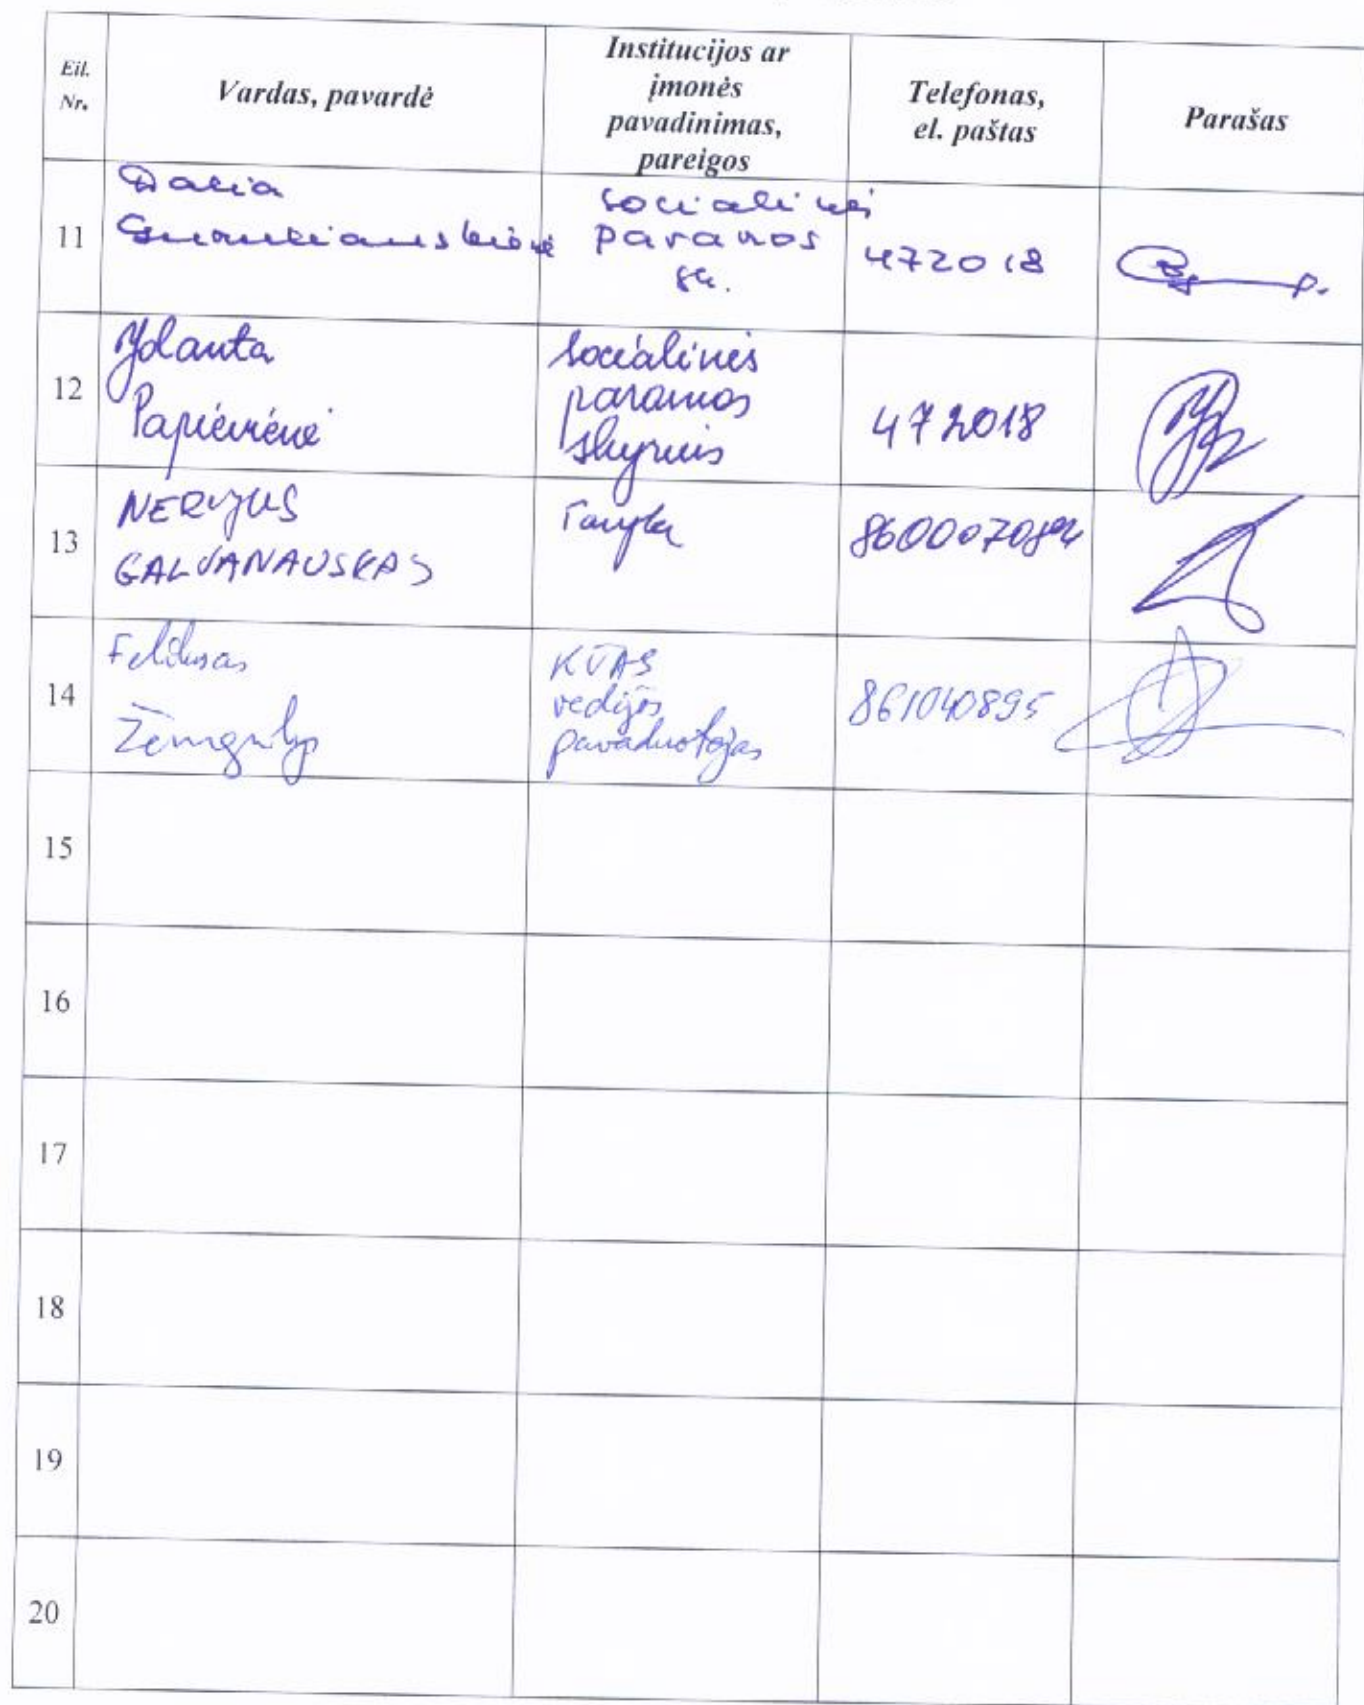 Eil.
Nr.
Vardas, pavardė
Institucijos ar
įmonės
pavadinimas,
pareigos
Telefonas,
el. paštas
Parašas
11
Dalia
socialinės
paramos
sk.
472018
12
Jolanta
Socialinės
paramos
skyrius
472018
13
NERIJUS
GALVANAUSKAS
Taryba
14
Feliksas
Žemgulys
vedėjos
pavaduotojas
861040895
15
16
17
18
19
20